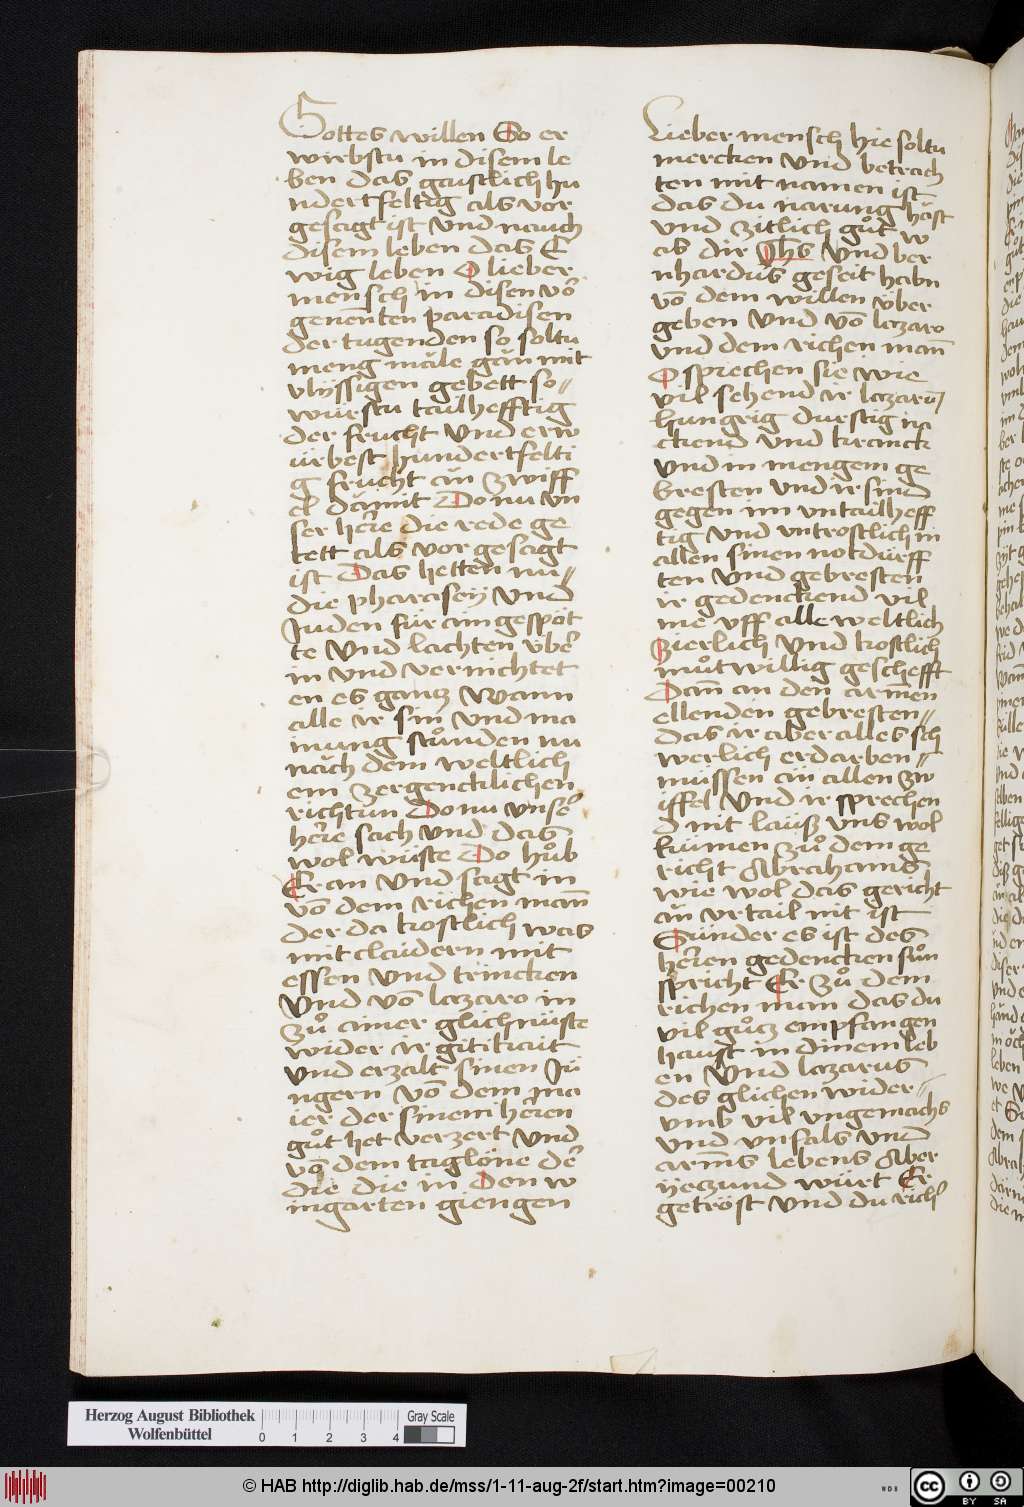 Gottes willen So er
wirbstu in disem le
ben das gaistlich hu
ndertfeltig als vor
gesagt ist Vnd nauch
disem leben das E
wig leben O lieber
mensch in disen vor̄
genen̄ten paradisen
der tugenden so soltu
meng mäle gän mit
vlÿssigen gebett so //
würstu tailhefftig
der frucht Vnd erw
ürbest hundertfelti
g frucht än zwiff
el dämit Do nu vn
ser her̄e die rede ge
tett als vor gesagt
ist Das hetten nu //
die pharasey Vnd
Juden für ain gespöt
te Vnd lachten über̄
in vnd vernichtet
en es gancz Wann
alle ir sin̄ Vnd ma
inung stůnden nu
näch dem weltlich
em zergencklichen
richtun Do nu vnser̄
her̄e sach Vnd das
wol wüste Do hůb
Er an Vnd sagt in
vō dem richen man̄
der da kostlich was
mit claidern mit
essen Vnd trincken
Vnd vō lazaro in
zů ainer glichnüste
wider ir gitikait
Vnd erzalt sinen Jü
ngern vō dem ma
ier der sinem her̄en
gůt het verzert Vnd
vō dem taglöne der̄
die die in Den w
ingarten giengen
Lieber mensch hie soltu
mercken Vnd betrach
ten mit namen ist
das du narung häst
vnd zitlich gůt w
as dir Jhs Vnd ber
nhardus geseit habn
vō dem willen über
geben Vnd vō lazaro
vnd dem richen man̄
O sprechen sie wie
vil sehend ir lazarū
hungrig durstig na
ckend vnd kranck
vnd in mengem ge
bresten vnd ir sind
gegen im vntailheff
tig vnd vntrostlich in
allen sinen notdürff
ten Vnd gebresten
ir gedenckend vil
me vff alle weltlich
zierlich Vnd kostlich
můtwillig geschefft
Dan̄ an den armen
ellenden gebresten //
das ir aber alles sch
werlich erdarben //
müssen än allen zw
iffel Vnd ir sprechen
d nit lauß vns wol
kumen zů dem ge
richt Abrahams
wie wol das gericht
än vrtail nit ist
Sünder es ist des
her̄en gedencken sůn
spricht Er zů dem
richen man das du
vil gůcz empfangen
haust in dinem leb
en Vnd lazarus
des glichen wider //
vmb vil vngemachs
vnd vnfals vnd
arm̄s lebens Aber
yeczund würt Er
getröst Vnd du rich
Herzog August Bibliothek
Wolfenbüttel
0 1 2 3 4
Gray Scale
© HAB http://diglib.hab.de/mss/1-11-aug-2f/start.htm?image=00210
WDB
cc BY SA